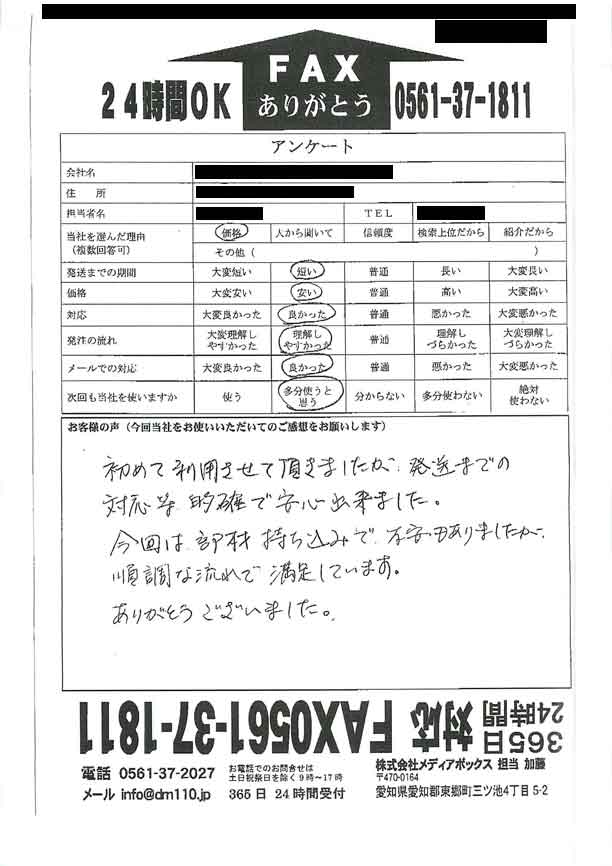 FAX
ありがとう
24時間OK
0561-37-1811
アンケート
会社名
住 所
担当者名 TEL
当社を選んだ理由（複数回答可） 価格 人から聞いて 信頼度 検索上位だから 紹介だから
その他（ ）
発送までの期間 大変短い 短い 普通 長い 大変長い
価格 大変安い 安い 普通 高い 大変高い
対応 大変良かった 良かった 普通 悪かった 大変悪かった
発注の流れ 大変理解しやすかった 理解しやすかった 普通 理解しづらかった 大変理解しづらかった
メールでの対応 大変良かった 良かった 普通 悪かった 大変悪かった
次回も当社を使いますか 使う 多分使うと思う 分からない 多分使わない 絶対使わない
お客様の声（今回当社をお使いいただいてのご感想をお願いします）
初めて利用させて頂きましたが、発送までの
対応等 的確で安心出来ました。
今回は、部材持ち込みで、不安もありましたが、
順調な流れで満足しています。
ありがとうございました。
365日
24時間
対応 FAX0561-37-1811
電話 0561-37-2027
お電話でのお問合せは
土日祝祭日を除く9時～17時
株式会社メディアボックス 担当 加藤
〒470-0164
メール info@dm110.jp
365日 24時間受付
愛知県愛知郡東郷町三ツ池4丁目5-2